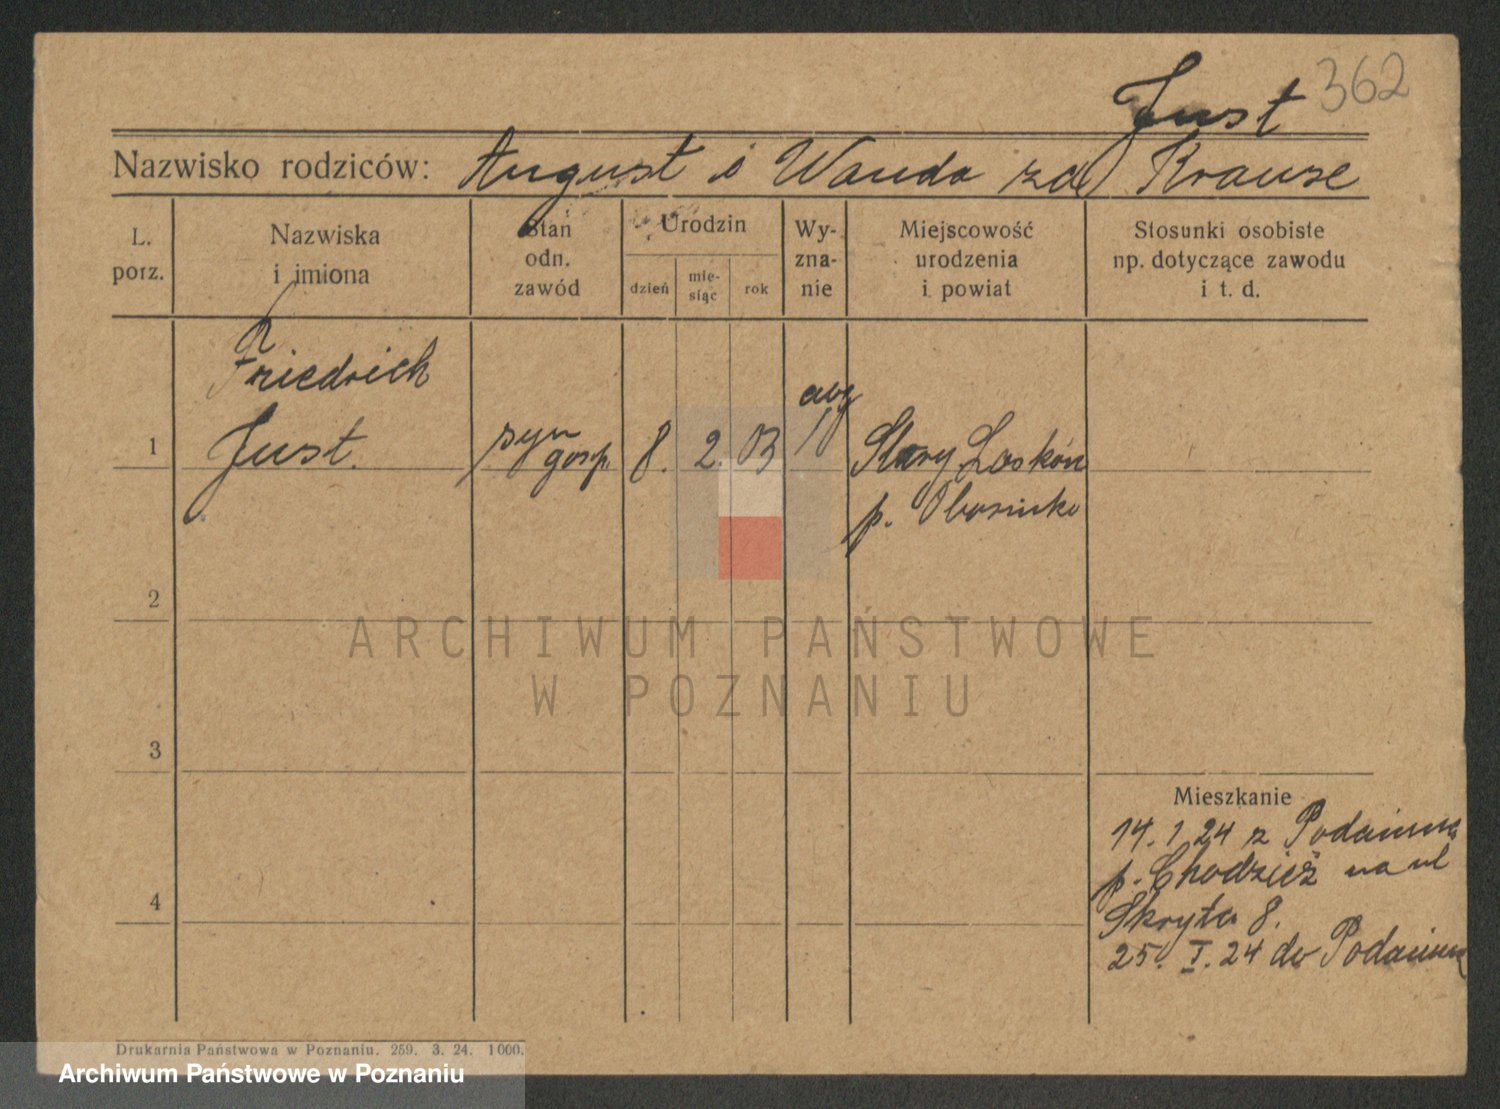 Just 362
Nazwisko rodziców: August i Wanda zd Krause
L. porz.
Nazwiska i imiona
Stan odn. zawód
Urodzin
dzień
mie-siąc
rok
Wy-zna-nie
Miejscowość urodzenia i powiat
Stosunki osobiste np. dotyczące zawodu i t. d.
Friedrich
1 Just. syn gosp. 8. 2. 03 Stary Laskón
p.
2
ARCHIWUM PAŃSTWOWE
W POZNANIU
3
Mieszkanie
14. 1 24 z
p. Chodzież na ul
4
Skryta 8.
25. I. 24 do
Drukarnia Państwowa w Poznaniu. 259. 3. 24. 1000.
Archiwum Państwowe w Poznaniu